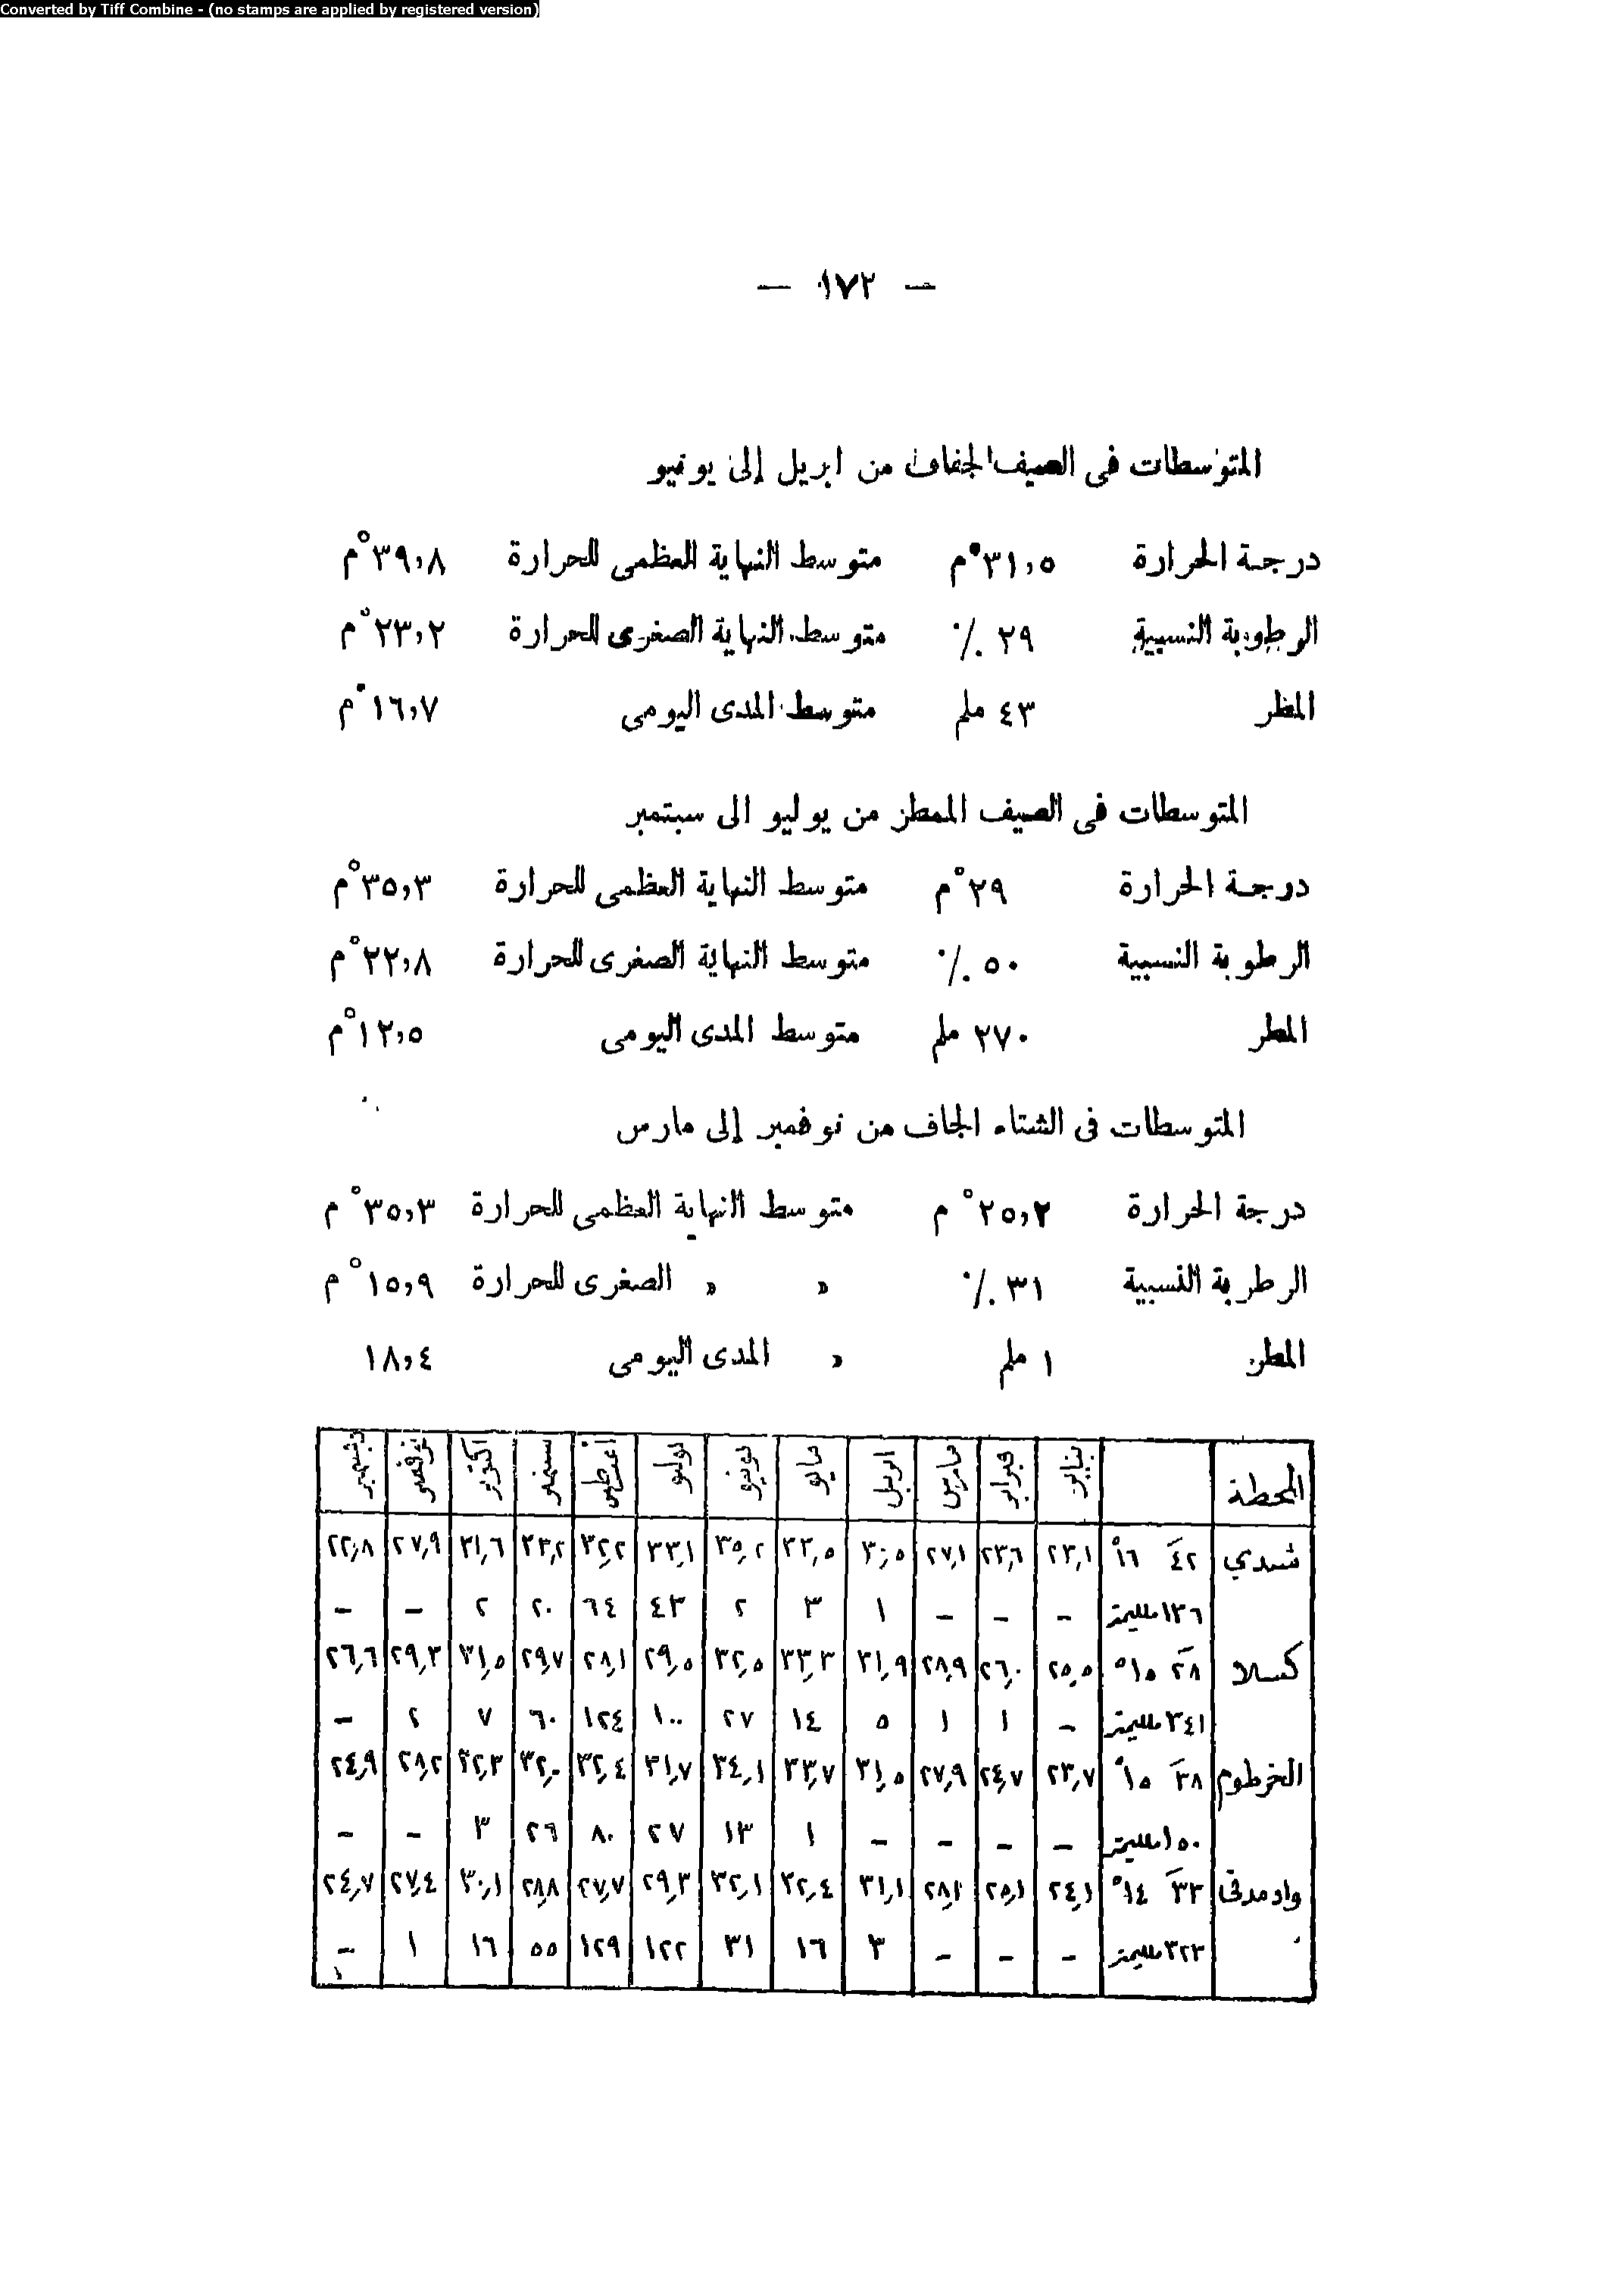 Converted by Tiff Combine - (no stamps are applied by registered version)
— ١٧٢ —
المتوسطات فى الصيف الجفاف من ابريل إلى يونيو
درجة الحرارة ٣١,٥°م متوسط النهاية العظمى للحرارة ٣٩,٨°م
الرطوبة النسبية ٢٩ ٪ متوسط النهاية الصغرى للحرارة ٢٣,٢°م
المطر ٤٣ ملم متوسط المدى اليومى ١٦,٧°م
المتوسطات فى الصيف الممطر من يوليو الى سبتمبر
درجة الحرارة ٢٩°م متوسط النهاية العظمى للحرارة ٣٥,٣°م
الرطوبة النسبية ٥٠ ٪ متوسط النهاية الصغرى للحرارة ٢٢,٨°م
المطر ٢٧٠ ملم متوسط المدى اليومى ١٢,٥°م
المتوسطات فى الشتاء الجاف من نوفمبر إلى مارس
درجة الحرارة ٢٥,٢° م متوسط النهاية العظمى للحرارة ٣٥,٣° م
الرطوبة النسبية ٣١ ٪ » » الصغرى للحرارة ١٥,٩° م
المطر ١ ملم » المدى اليومى ١٨,٤
المحطة يناير فبراير مارس ابريل مايو يونيو يوليو اغسطس سبتمبر اكتوبر نوفمبر ديسمبر
شندي ٤٢ ١٦° ٢٣,١ ٢٣,٦ ٢٧,١ ٣٠,٥ ٣٣,٥ ٣٥,٢ ٣٣,١ ٣٢,٢ ٣٣,٢ ٣١,٦ ٢٧,٩ ٢٢,٨
١٣٦ ملليمتر - - - ١ ٣ ٢ ٤٣ ٦٤ ٢٠ ٢ - -
كسلا ٢٨ ١٥° ٢٥,٥ ٢٦,٠ ٢٨,٩ ٣١,٩ ٣٣,٣ ٣٢,٥ ٢٩,٥ ٢٨,١ ٢٩,٧ ٣١,٥ ٢٩,٣ ٢٦,٦
٣٤١ ملليمتر - ١ ١ ٥ ١٤ ٢٧ ١٠٠ ١٢٤ ٦٠ ٧ ٢ -
الخرطوم ٣٨ ١٥° ٢٣,٧ ٢٤,٧ ٢٧,٩ ٣١,٥ ٣٣,٧ ٣٤,١ ٣١,٧ ٣٢,٤ ٣٢,٠ ٣٢,٣ ٢٨,٢ ٢٤,٩
١٥٠ ملليمتر - - - - ١ ١٣ ٢٧ ٨٠ ٢٦ ٣ - -
واد مدنى ٣٣ ١٤° ٢٤,١ ٢٥,١ ٢٨,٢ ٣١,١ ٣٢,٤ ٣٢,١ ٢٩,٣ ٢٧,٧ ٢٨,٨ ٣٠,١ ٢٧,٤ ٢٤,٧
٣٢٣ ملليمتر - - - ٣ ١٦ ٣١ ١٢٢ ١٢٩ ٥٥ ١٦ ١ -